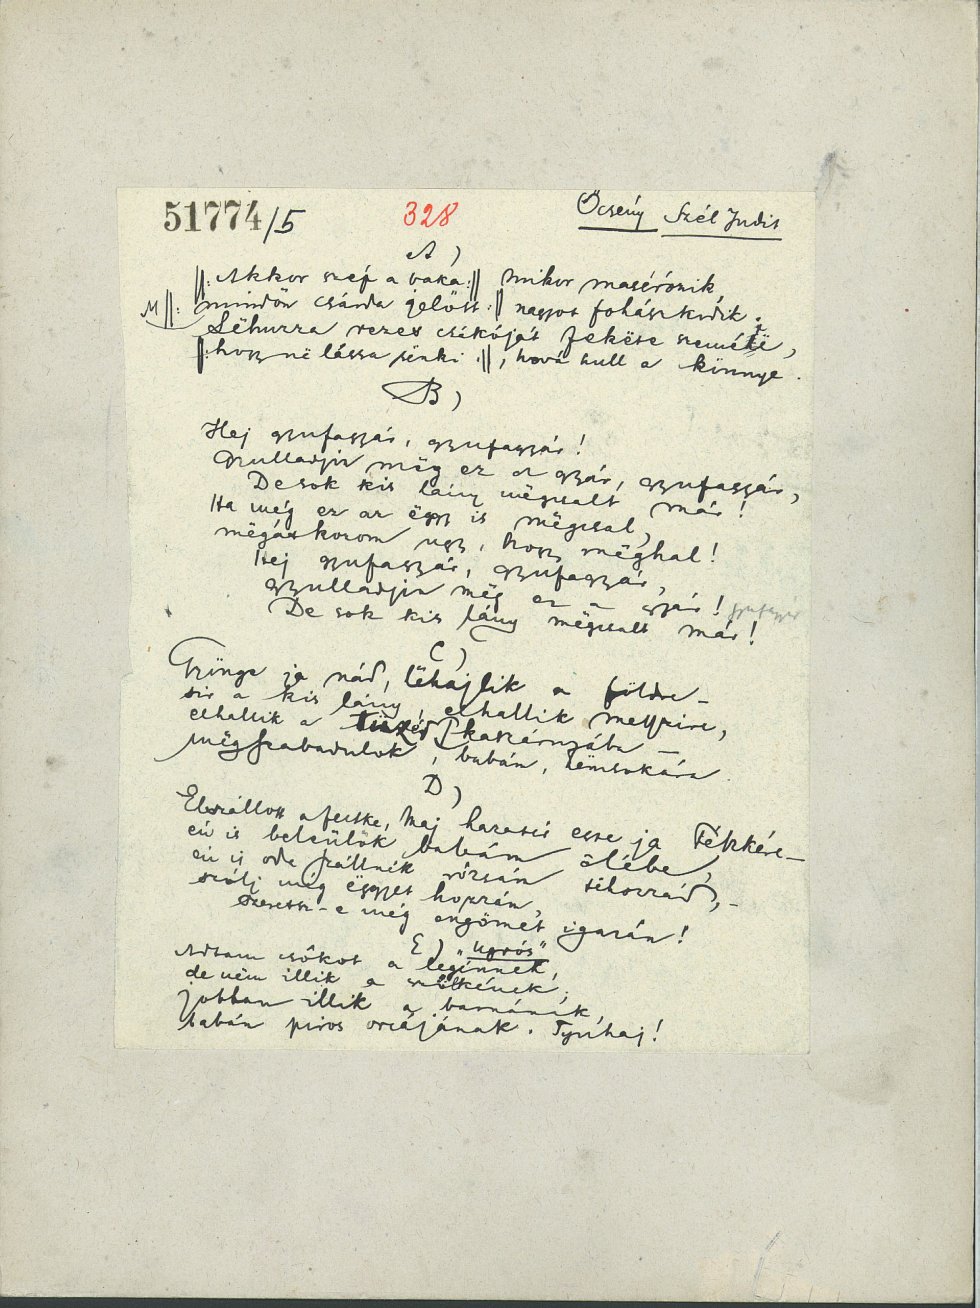 51774/5
328
Őcsény Szél Judit
A)
||: Akkor szép a baka :|| mikor masérozik,
M ||: mindön csárda jelőtt :|| nagyot fohászkodik.
Lëhuzza rezes csákóját fekëte szemére,
||: hogy në lássa sënki :||, hová hull a könnye.
B)
Hej gyufagyár, gyufagyár!
Gyulladjon mëg ez a gyár, gyufagyár,
De sok kis lány mëgcsalt már!
Ha még ez az ëggy is mëgcsal,
mëgátkozom ugy, hogy mëghal!
Hej gyufagyár, gyufagyár,
gyulladjon mëg ez a gyár! gyufagyár
De sok kis lány mëgcsalt már!
C)
Gyönge ja nád, lëhajlik a földre –
sir a kis lány, elhallik messzire,
elhallik a tüzér kaszárnyába –
mëgszabadulok, babám, nemsokára.
D)
Elszállott a fecske, maj harasut esse ja
én is beleülök babám ölébe,
én is oda szállnék rózsám
szólj még ëggyet hozzám,
szeretsz-e még engömet igazán!
E) "Ugrós"
Adtam csókot a legénnek,
de nëm illik a szőkének,
jobban illik a barnának,
babán piros orcájának. Tyuhaj!